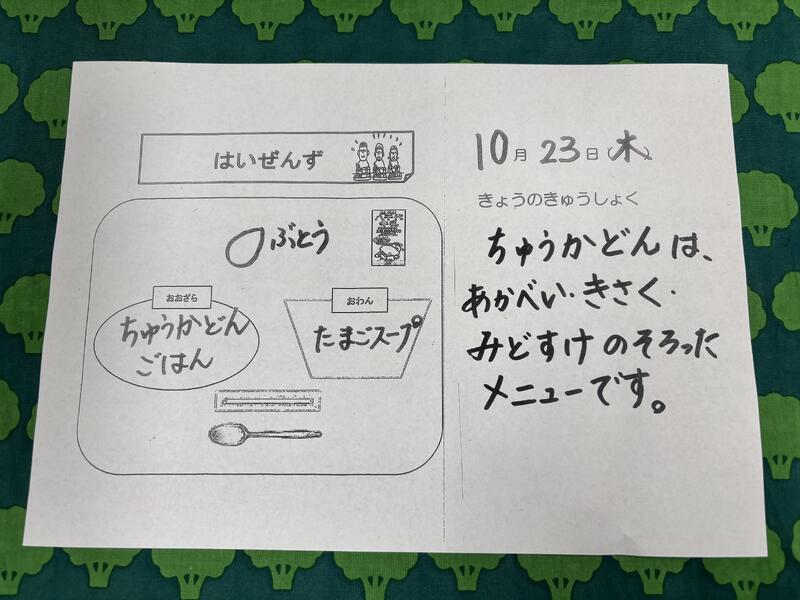 はいぜんず
ぶとう
おおざら
ちゅうかどん
ごはん
おわん
たまごスープ
10月23日(木)
きょうのきゅうしょく
ちゅうかどんは、
あかべい・きさく・
みどすけのそろった
メニューです。